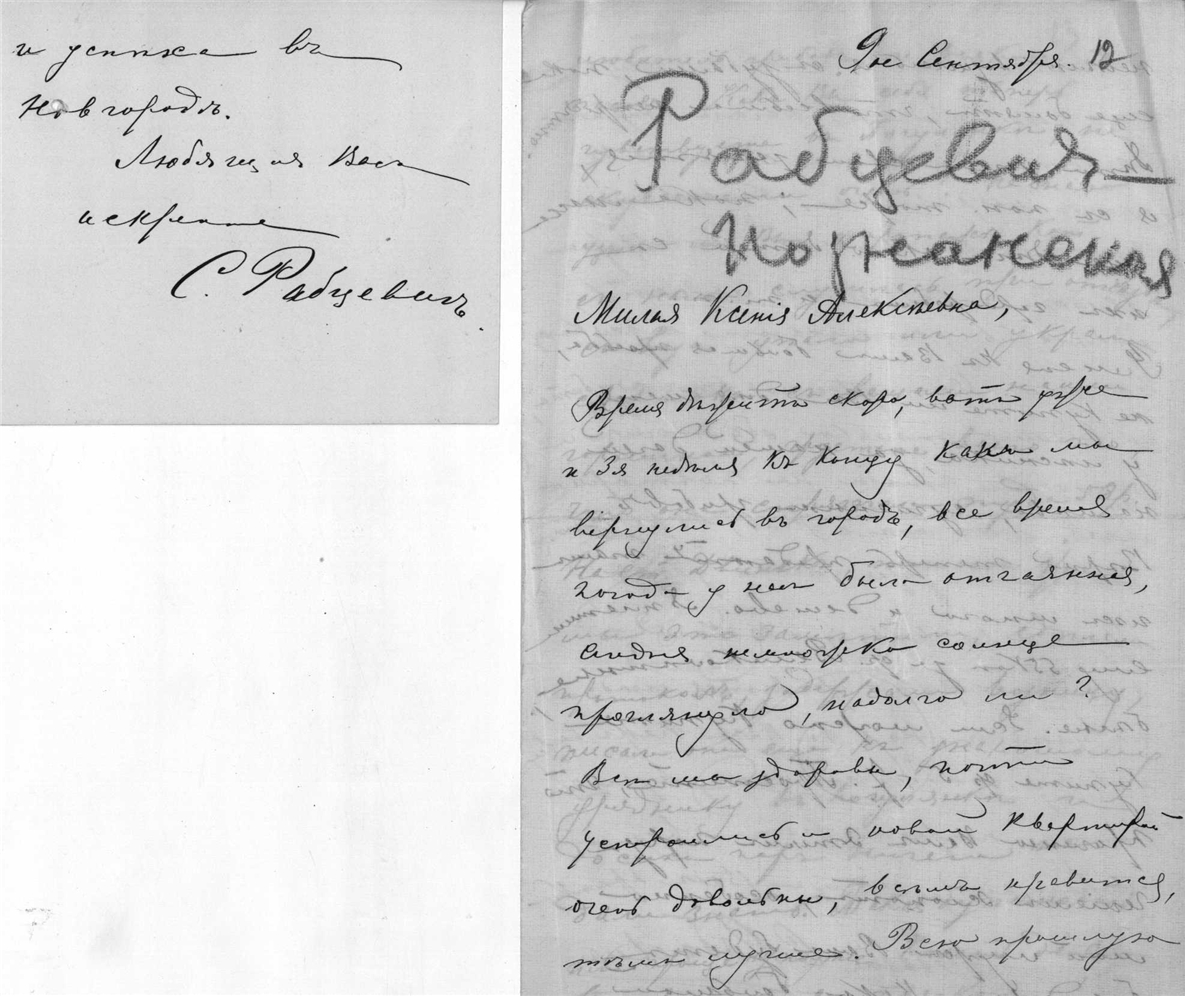 и успѣха въ
Новгородѣ.
Любящая Васъ
искренне
С. Рабцевичъ.
9ое Сентября. 12
Рабцевич-
Поржанская
Милая Ксенія Алексѣевна,
Время бѣжитъ скоро, вотъ уже
и 3я недѣля къ концу какъ мы
вернулись въ городъ, все время
погода у насъ была отчаянная,
сегодня немножко солнце
проглянуло, надолго ли?
Всѣ мы здоровы, почти
устроились и новой квартирой
очень довольны, всѣмъ нравится,
тѣмъ лучше. Всю прошлую